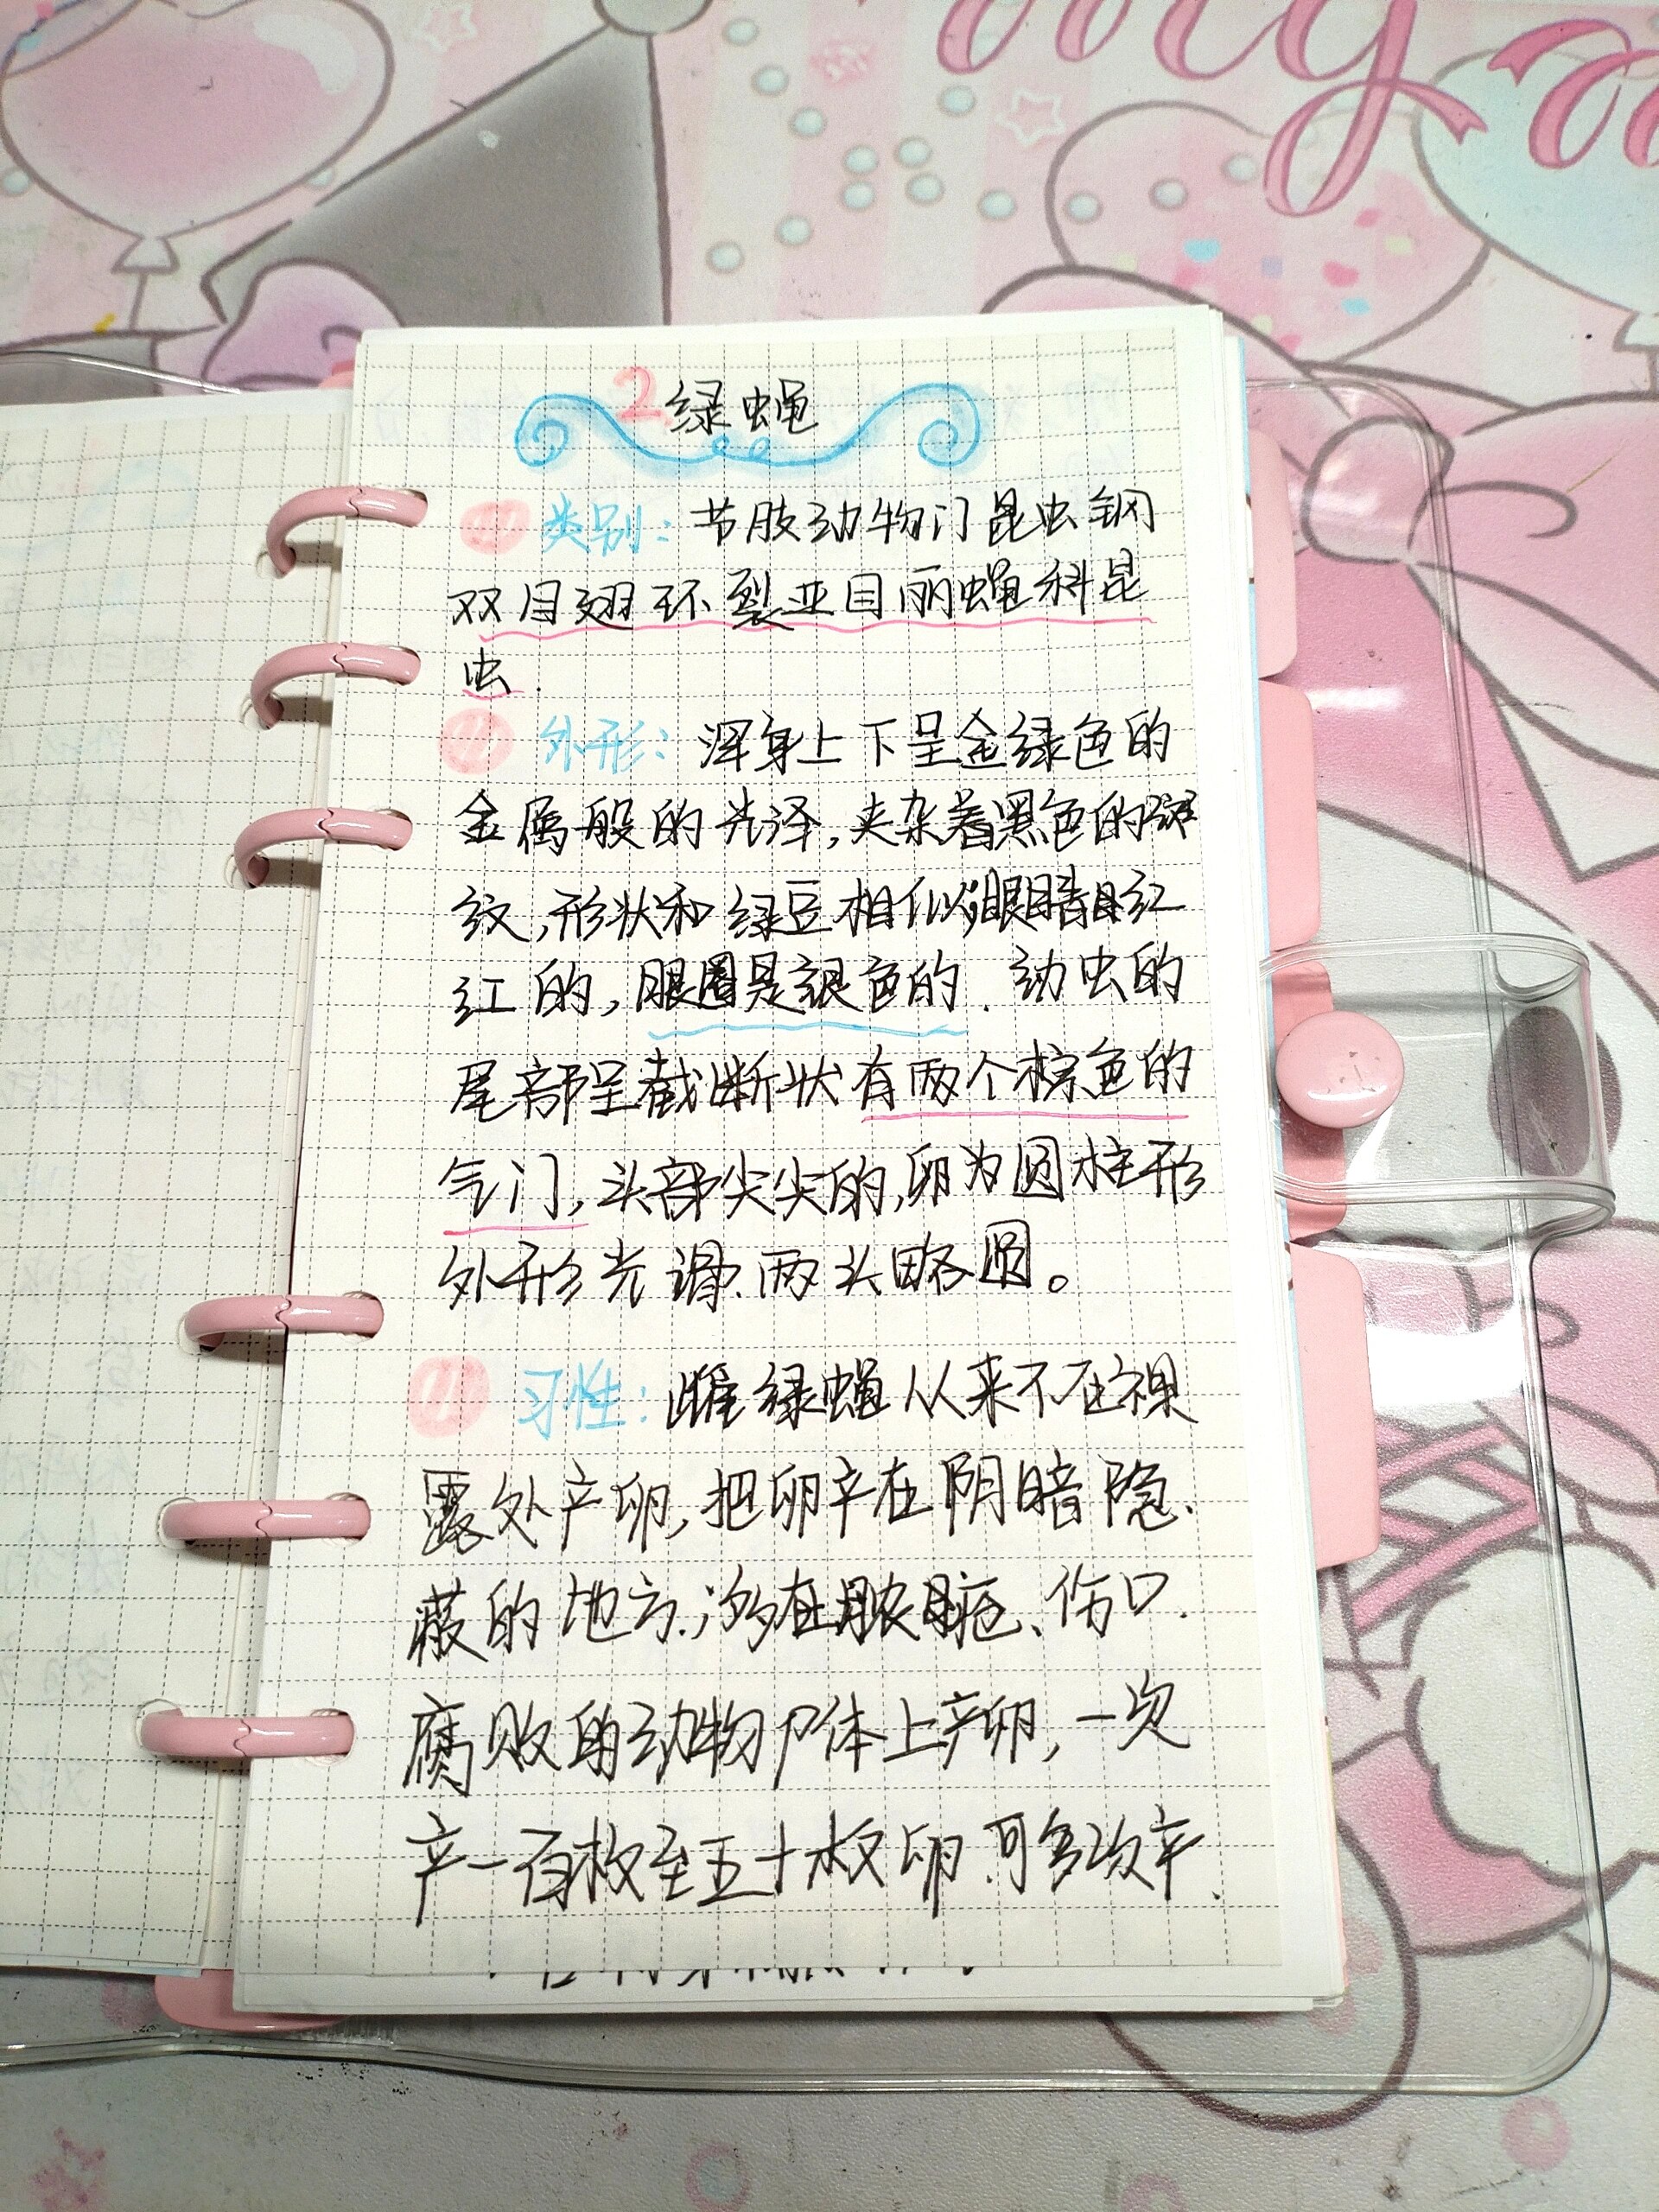 my
2. 绿蝇
类别: 节肢动物门昆虫钢
双目翅环裂亚目丽蝇科昆
虫.
外形: 浑身上下呈金绿色的
金属般的光泽,夹杂着黑色的斑
纹,形状和绿豆相似,眼睛红
红的,眼圈是银色的.幼虫的
尾部呈截断状有两个棕色的
气门,头部尖尖的,卵为圆柱形
外形光滑、两头略圆。
习性: 雌绿蝇从来不在裸
露处产卵,把卵产在阴暗隐、
蔽的地方.;多在脓疮、伤口.
腐败的动物尸体上产卵,一次
产一百枚至五十枚卵.可多次产.